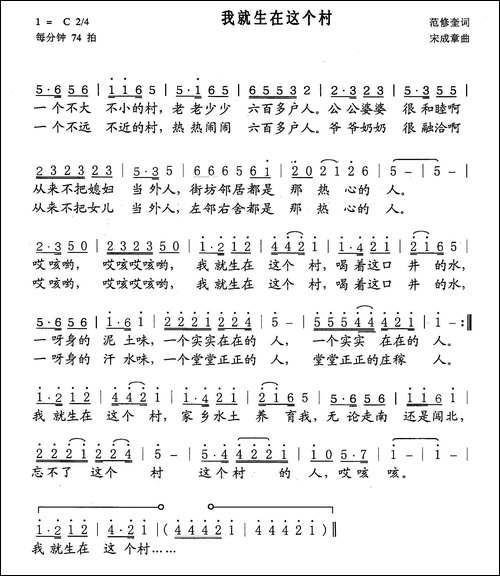 我就生在这个村
1 = C 2/4
范修奎词
每分钟 74 拍
宋成章曲
5·6 5 6 | 1 1 6 5 | 5·3 5 3 | 6 5 5 3 3 | 2·3 2 3 | 5·3 5 5 |
一个不大 不小的村,老老少少 六百多户人。公公婆婆 很和睦啊
一个不远 不近的村,热热闹闹 六百多户人。爷爷奶奶 很融洽啊
从来不把媳妇 当外人,街坊邻居都是 那热心的人。
从来不把女儿 当外人,左邻右舍都是 那热心的人。
哎咳哟, 哎咳哎咳哟, 我就生在 这个 村,喝着这口 井的水,
哎咳哟, 哎咳哎咳哟, 我就生在 这个 村,喝着这口 井的水,
一呀身的 泥土味,一个实实在在的 人, 一个实实 在在的人。
一呀身的 汗水味,一个堂堂正正的 人, 堂堂正正的庄稼 人。
我就生在 这个 村,家乡水土 养育我,无论走南 还是闯北,
忘不了 这个 村 这个村 的 人,哎咳 咳。
1·2 1 2 | 4·2 1 | ( 4 4 4 2 1 | 4 4 4 2 1 )
我就生在 这个村……